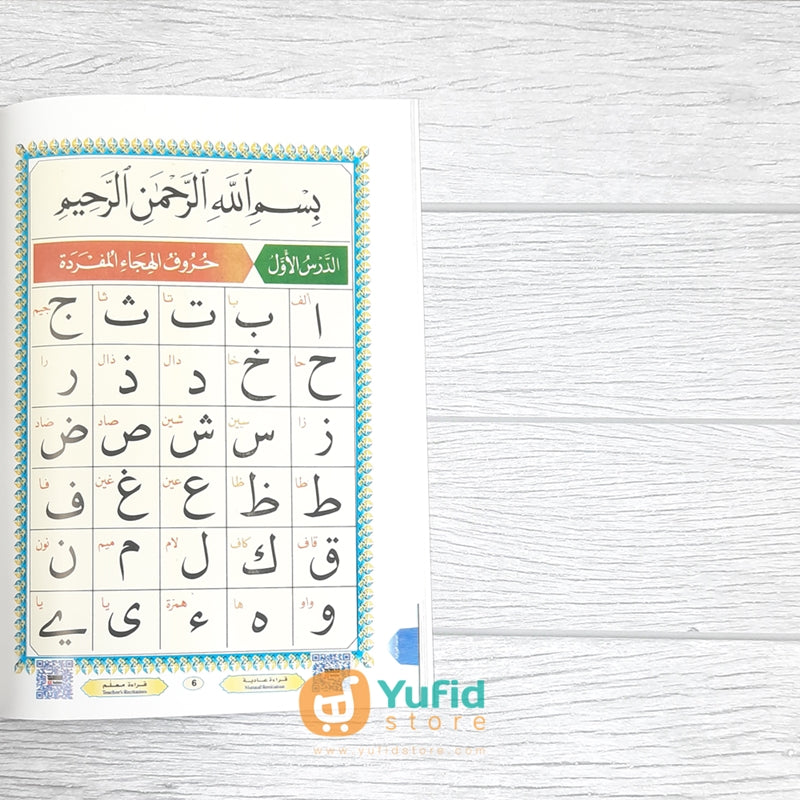 بِسْمِ ٱللَّهِ ٱلرَّحْمَٰنِ ٱلرَّحِيمِ
الدَّرْسُ الأَوَّلُ حُرُوفُ الهِجَاءِ المُفْرَدَة
ألف با تا ثا جيم
ا ب ت ث ج
حا خا دال ذال را
ح خ د ذ ر
زا سين شين صاد صاد
ز س ش ص ض
طا ظا عين غين فا
ط ظ ع غ ف
قاف كاف لام ميم نون
ق ك ل م ن
واو ها همزة يا يا
و ه ء ى ے
قراءة عادية 6 قراءة معلم
Teacher's Recitation
Yufid
store
www.yufidstore.com